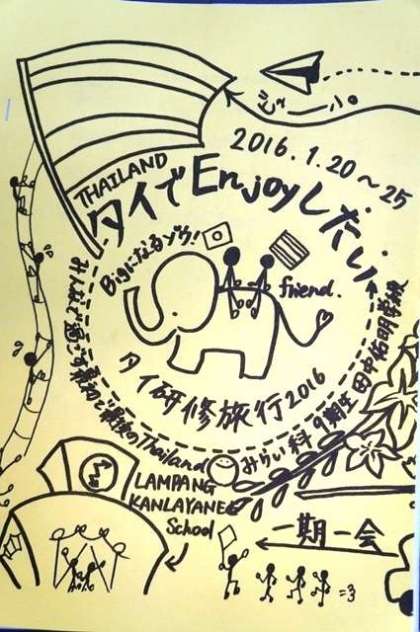 びゅーん。
2016.1.20～25
THAILAND
タイでEnjoyしたい
Bigになるゾウ!
friend.
タイ研修旅行2016
みんなで過ごす最初で最後のThailand
みらい科9期生田中佑明学級
LAMPANG
KANLAYANEE
School
一期一会